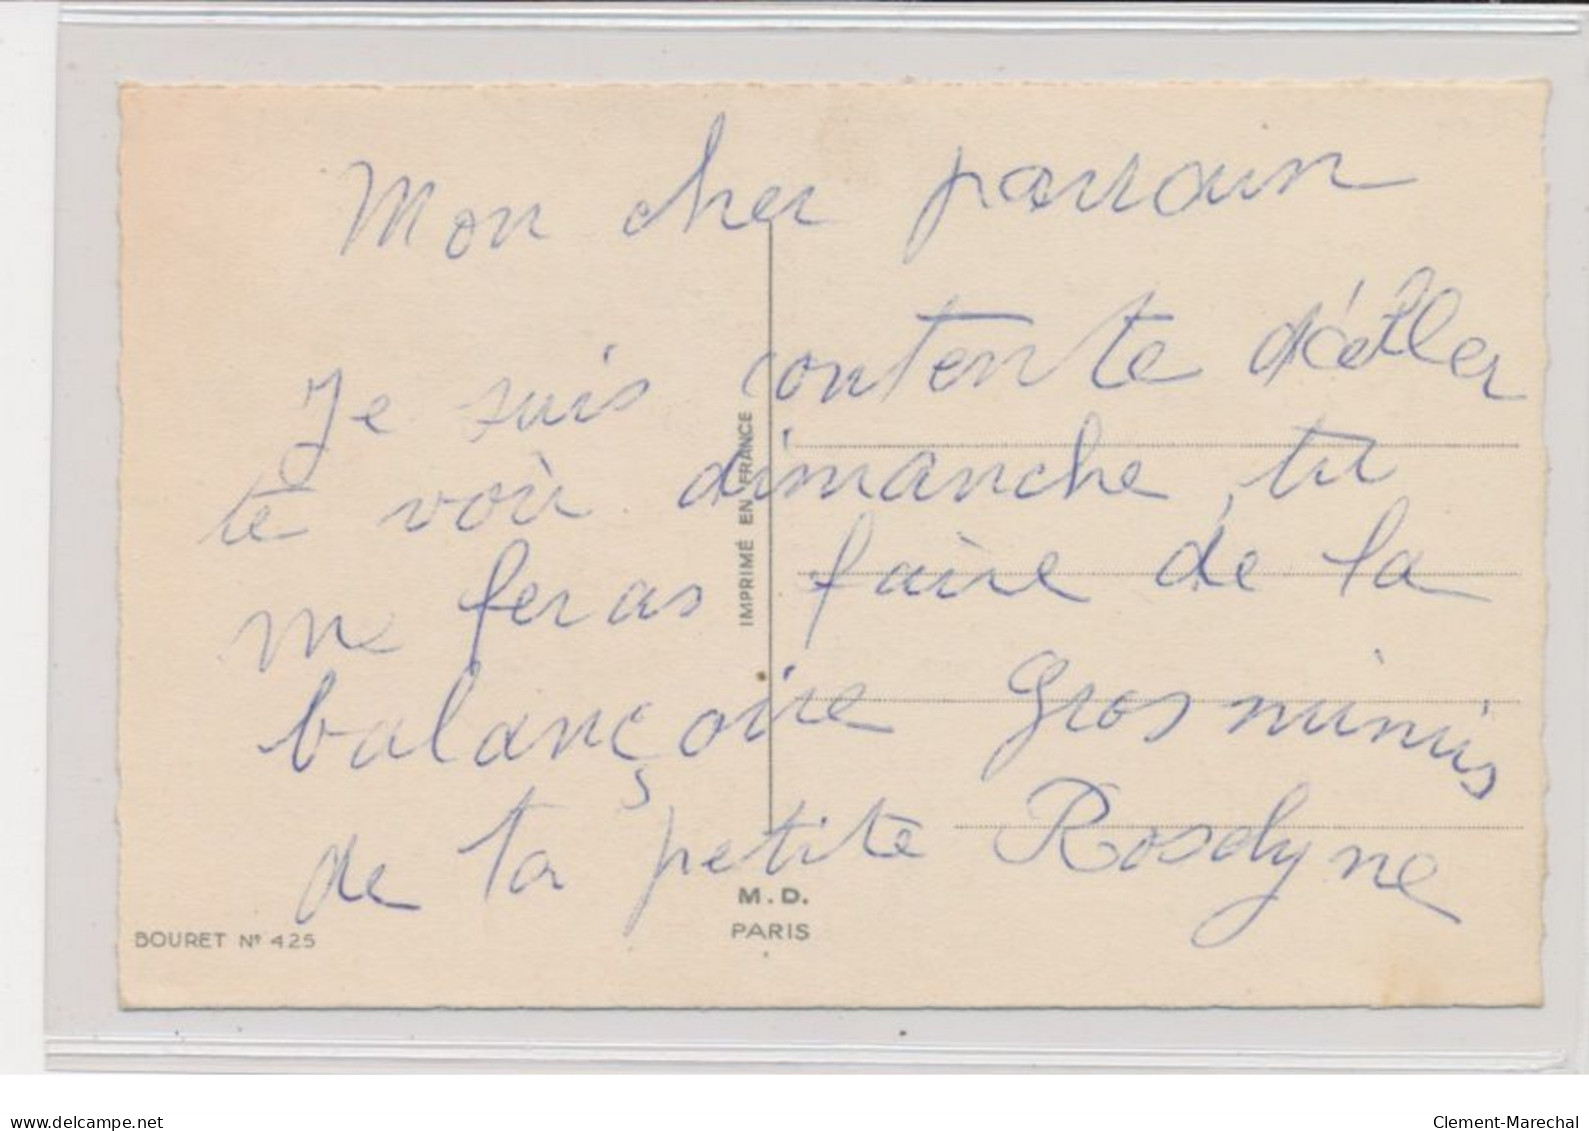 Mon cher parrain
Je suis contente d'aller
te voir dimanche, tu
me feras faire de la
balançoire Gros mimis
de ta petite Roselyne
IMPRIMÉ EN FRANCE
M. D.
PARIS
BOURET Nº 425
delcampe.net
Clement-Marechal